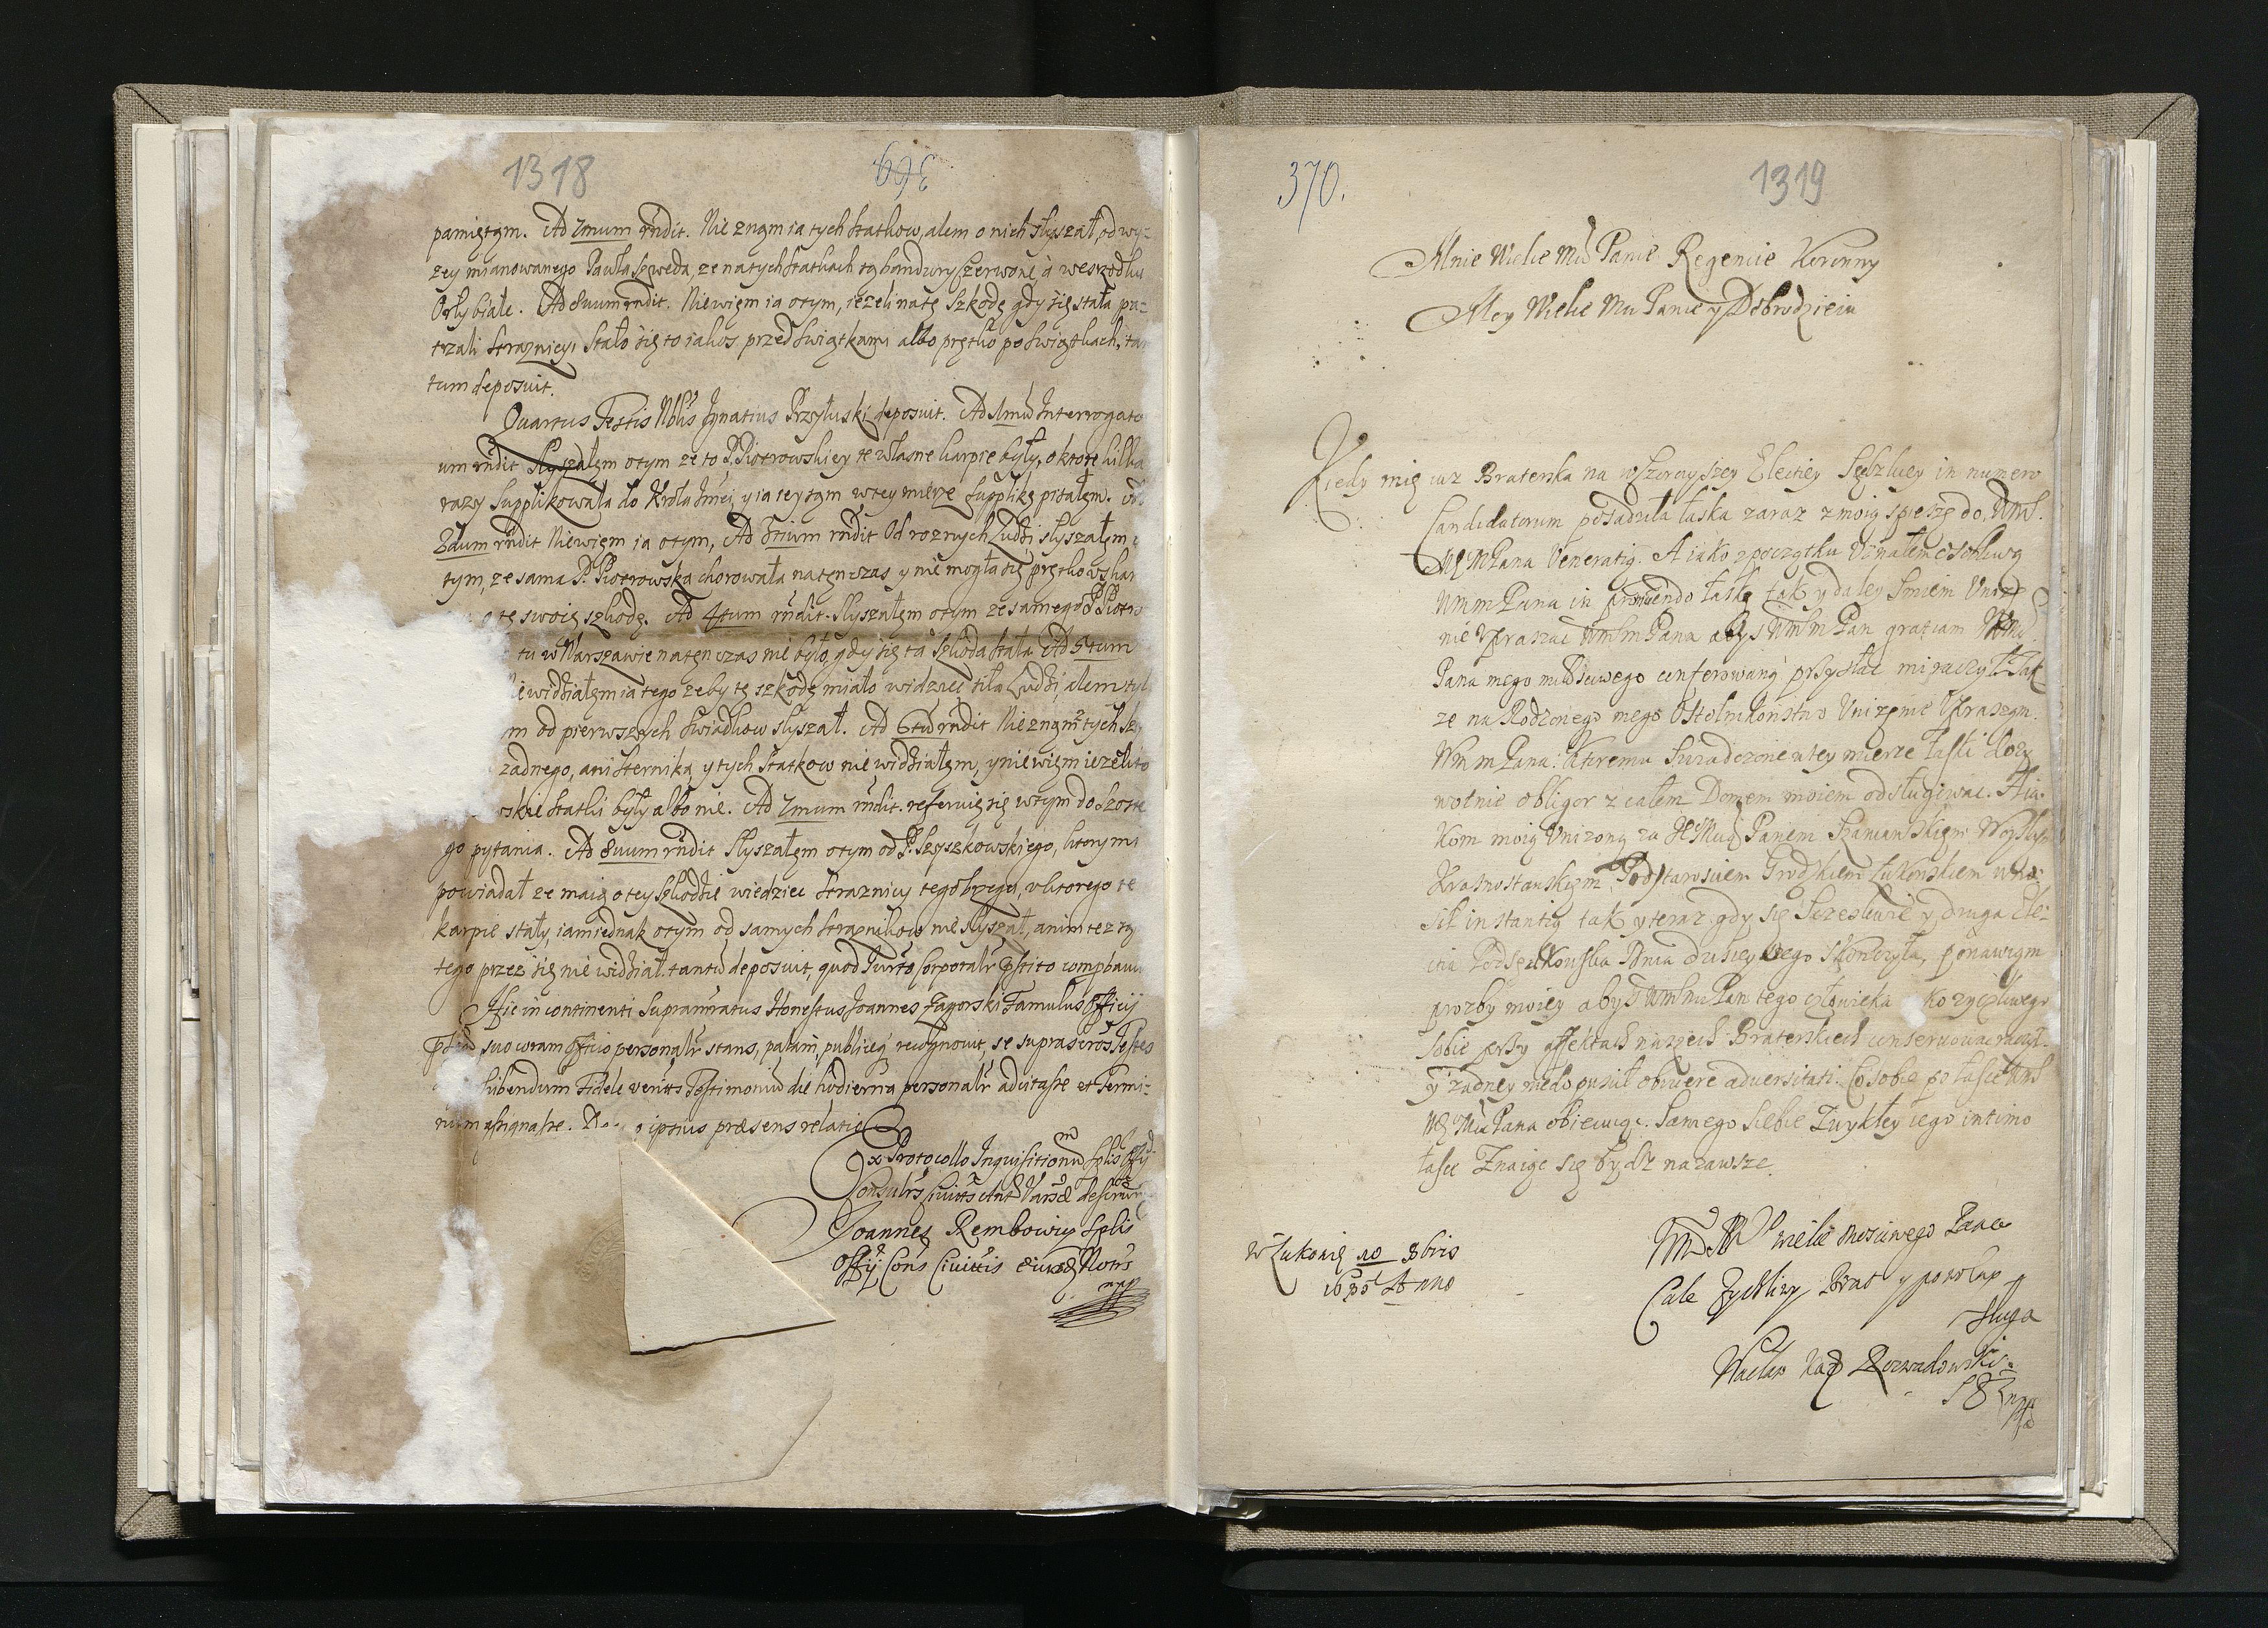 1318
369
pamiętam. Ad 7mum rñdit. Nie znam ia tych statkow, alem o nich słyszał, od wy=
zey mianowanego Pawła Szweda, ze na tych statkach są bandury czerwone, a wesrzodku
Orły białe. Ad 8vum rñdit. Niewiem ia otym, iezeli na tę szkodę gdy się stała pa=
trzali straznicy, stało się to iakos przed swiątkami albo prętko po swiątkach, tan
tum deposuit.
Quartus Testis Nblis Ignatius Przyłuski deposuit. Ad 1mũ Interrogato
um rñdit Słyszałem otym ze to P. Piotrowskiey te własne karpie były, o ktore kilka
razy supplikowała do Krola Jmci, y ia iey sam w tey mierze supplikę pisałem. Ad
2dum rñdit Niewiem ia otym, Ad 3tium rñdit Od roznych Ludzi słyszałem o
tym, ze sama P. Piotrowska chorowała natenczas y nie mogła się prętko uskar
o tę swoię szkodę. Ad 4tum rñdit. Słyszałem otym ze samego P. Piotro
tu w Warszawie natenczas nie było, gdy się ta szkoda stała. Ad 5tum
Niewidziałem ia tego zeby tę szkodę miało widziec siła Ludzi, alem tyl
m od pierwszych swiadkow słyszał. Ad 6tũ rñdit Nie znam tych
zadnego, ani sternika, y tych statkow nie widziałem, y niewiem iezeli to
skie statki były albo nie. Ad 7mum rñdit. referuię się wtym do szoste
go pytania. Ad 8vum rñdit Słyszałem otym od P. Szyszkowskiego, ktory mi
powiadał ze maią o tey szkodzie wiedziec straznicy tego brzegu, u ktorego te
karpie stały, iam iednak otym od samych straznikow nie słyszał, anim tez sa
tego przez się nie widział. tantũ deposuit, quod Jurto corporalr pstito compbavit
Hic in continenti supranratus Honestus Joannes Zagorski Famulus Officij
suo coram Officio personalr stans, palam, publiceq recognovit, se suprascros Testes
hibendum Fidele veritts Testimoniũ die hodierna personalr adcitasse et Termi=
num assignasse. ipsius præsens relatio
Ex Protocollo Inquisitionũ Splis Offij
Consulris Civitts Ant Varsæ descript
Joannes Rembowicz Splis
Offij Cons Civittis eiusd Nots
mp
370.
1319
Mnie Wielce Mci Panie Regencie Koronny
Moy Wielce Mci Panie y Dobrodzieiu
Kiedy mię iuz Braterska na wczorayszey Electiey Sędzkiey in numero
Candidatorum posadziła łaska zaraz z moią spieszę do Wms.
Mę MPana Veneratią. A iako zpoczątku Uznałem osobliwą
WmmPana in promovendo łaskę tak y daley smiem Unize
nie Upraszac WmsmPana abys WmsmPan gratiam
Pana mego miłosciwego conferowaną przysłac mi raczył. Tak
ze na Rodzonego mego Ostolnikostwo Unizenie Upraszam
WmmPana. Ktoremu swiadczone w tey mierze łaski
wotnie obligor z całem Domem moiem odsługiwac. A ia
kom moią Unizoną za Panem Szaniawskiem Woyskim
Krasnostawskiem, Podstarosciem Grodzkiem Łukowskiem wno
sił instantią tak y teraz gdy się Szczesliwie y druga Ele=
ctia Podsędkowska Dnia dzisieyszego skonczyła, ponawiam
prozby moiey abys WmsmPan tego człowieka zyczliwego
sobie przy affektach naszych Braterskich conserwowac raczył
y zadney niedopuscił obviere adversitati. Co sobie po łasce Wms
Mę MPana obiecuiąc. Samego siebie Zwykłey iego intimo
łasce Znaiąc się bydz nazawsze.
Wms wielce Mosciwego Pana
Cale Zyczliwy Brat y powolny
sługa
Wacław Kaz Rozwadowski
w Łukowie 10 8bris
Anno